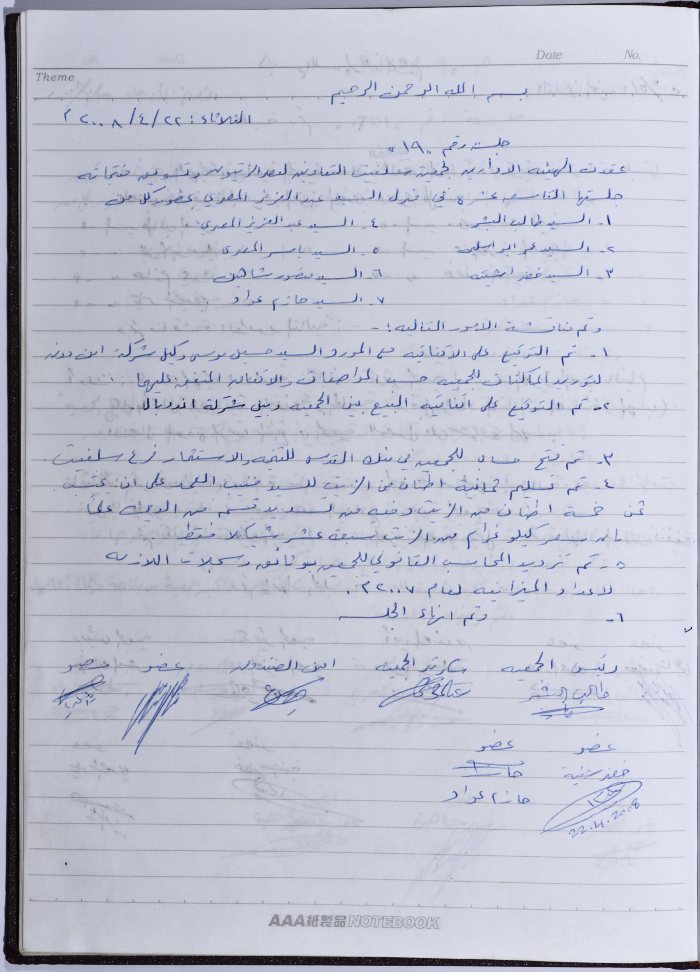 Date No.
Theme
بسم الله الرحمن الرحيم
الثلاثاء: ٢٢/٤/٢٠٠٨ م
جلسة رقم "١٩"
عقدت الهيئة الادارية لجمعية التعاونية لعصر الزيتون وتسويق منتجاته
جلستها التاسعة عشر في منزل السيد عبد العزيز المصري بحضور كل من
١- السيد طالب البشر ٤- السيد عبد العزيز المصري
٢- السيد عمر ابو اسليم ٥- السيد ياسر المصري
٣- السيد خضر ٦- السيد منصور شاهين
٧- السيد حازم عواد
وتم مناقشة الامور التالية:-
١- تم التوقيع على الاتفاقية مع المورد السيد حسين موسى وكيل شركة
لتوريد الماكنات للجمعية حسب المواصفات والاتفاق المتفق عليها
٢- تم التوقيع على اتفاقية البيع بين الجمعية وبين شركة
٣- تم فتح حساب للجمعية في بنك القدس للتنمية والاستثمار فرع سلفيت.
٤- تم تسليم ثمانية اطنان من الزيت للسيد على ان
ثمن خمسة اطنان من الزيت قسم من الديون علماً
بان سعر كيلو غرام من الزيت سبعة عشر شيكلا فقط
٥- تم تزويد المحاسب القانوني للجمعية بوثائق وسجلات اللازمة
لاعداد الميزانية لعام ٢٠٠٧م.
٦- وتم انهاء الجلسة
رئيس الجمعية سكرتير الجمعية امين الصندوق عضو عضو
طالب البشر
عضو عضو
حازم عواد
22.4.2008
AAA紙製品NOTEBOOK